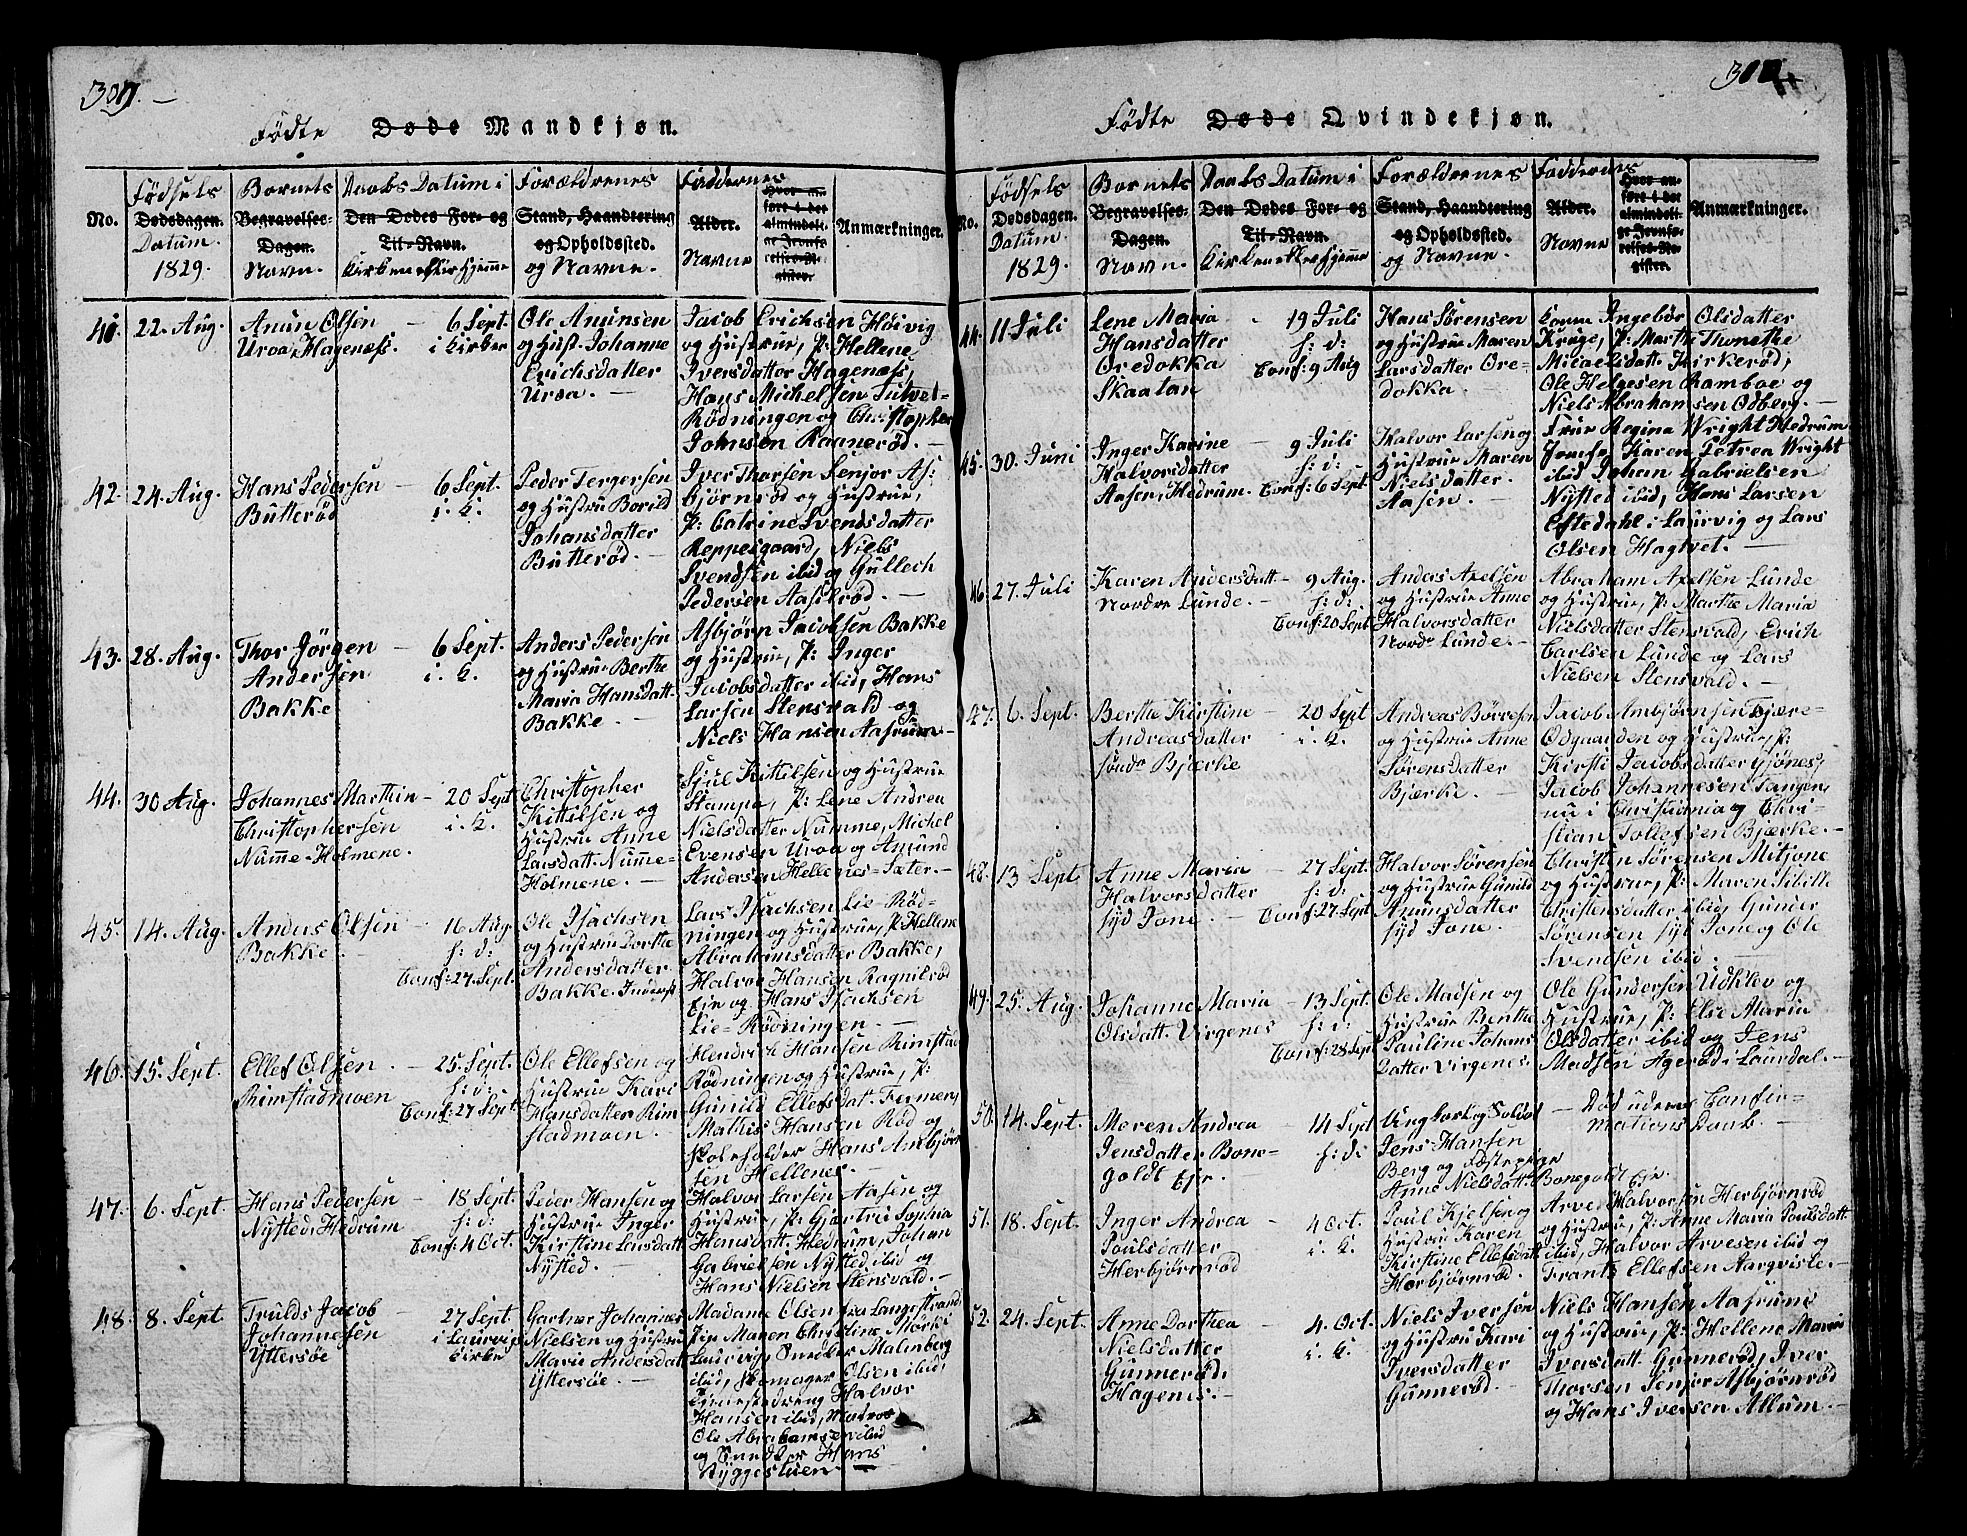 309.
Fødte Døde Mandkjøn.
No.
Fødsels
Dødsdagen.
Datum.
1829.
Bornets
Begravelses-
Dagen.
Navn.
Daabs Datum i
Den Dødes For- og
Til-Navn.
Kirken eller Hjemme
Forældrenes
Stand, Haandtering
og Opholdssted.
og Navne.
Faddernes
Alder.
Navne
Hvor an-
ført i det
almindeli-
ge Jevnfø-
relses-Re-
gister.
Anmærkninger.
41. 22. Aug.
Anun Olsen
Uroa, Hagenæss.
6 Sept.
i Kirken
Ole Anunsen
og Hust. Johanne
Erichsdatter
Uroa. —
Jacob Erichsen Høivig
og Hustrue, P: Hellene
Iversdatter Hagenæss,
Hans Michelsen Tutvet-
Rødningen og Christopher
Johnsen Raanerød. —
42. 24. Aug.
Hans Pedersen
Butterød
6 Sept.
i. K.
Peder Tergersen
og Hustrue Borild
Johansdatter
Butterød. —
Iver Thorsen Senjor As-
bjørnrød og Hustrue,
P: Catrine Svendsdatter
Reppesgaard, Niels
Svendsen ibid og Gullech
Pedersen Aasilrød. —
43. 28. Aug.
Thor Jørgen
Andersen
Bakke
6 Sept.
i. K.
Anders Pedersen
og Hustrue Berthe
Maria Hansdatt.
Bakke. —
Asbjørn Jacobsen Bakke
og Hustrue, P: Inger
Jacobsdatter ibid, Hans
Larsen Stensvald og
Niels Hansen Aasrum. —
44. 30 Aug.
Johannes Marthin
Christophersen
Numme-Holmene.
20 Sept
i. K.
Christopher
Kittilsen og
Hustrue Anne
Larsdatt. Numme-
Holmene. —
Sjul Kittilsen og Hustrue
Stampa, P: Lene Andrea
Nielsdatter Numme, Michel
Evensen Uroa og Amund
Andersen Hellenes-Sæter. —
45. 14. Aug.
Anders Olsen
Bakke.
16 Aug
h: d:
Conf: 27. Sept.
Ole Isachsen
og Hustrue Dorthe
Andersdatter
Bakke. Inderst
Lars Isachsen Lie-Rød-
ningen og Hustrue, P: Hellene
Abrahamsdatter Bakke,
Halvor Hansen Ragnilrød
Eje og Hans Isachsen
Lie-Rødningen. —
46. 15. Sept.
Ellef Olsen
Rimstadmoen
25. Sept.
h: d:
Conf: 27 Sept.
Ole Ellefsen og
Hustrue Kari
Hansdatter Rim
stadmoen.
Hendrich Hansen Rimstad
Rødningen og Hustrue, P:
Gunild Ellefsdat.
Mathis Hansen Rød og
Skoleholder Hans Ambjørn
sen Hellenes. —
47. 6. Sept.
Hans Pedersen
Nysted i Hedrum
18 Sept.
h: d:
Conf: 4 Oct.
Peder Hansen og
Hustrue Inger
Kirstine Larsdatt.
Nysted. —
Halvor Larsen Aasen og
Hustrue, P: Gjertrui Sophia
Hansdatt. Hedrum, Johan
Gabrielsen Nysted ibid og
Hans Nielsen Stensvald. —
48. 8. Sept
Trulds Jacob
Johannesen
Yttersøe
27 Sept.
i Laurvigs
Kirke
Gartner Johannes
Nielsen og Hustrue
Marie Andersdatt.
Yttersøe. —
Madame Olsen fra Langestrand
Pip Maren Christine Mørk i
Laurvig, Snedker Malmberg
ibid, Skomager Olsen ibid,
Tjenestedreng Halvor
Hansen ibid, Matros
Ole Abrahamsen ibid
og Snedker Hans
Ryggestuen. —
Fødte Døde Qvindekjøn.
No.
Fødsels
Dødsdagen.
Datum.
1829.
Bornets
Begravelses-
Dagen.
Navn.
Daabs Datum i
Den Dødes For- og
Til-Navn.
Kirken eller Hjemme
Forældrenes
Stand, Haandtering
og Opholdssted.
og Navne.
Faddernes
Alder.
Navne
Hvor an-
ført i det
almindeli-
ge Jevnfø-
relses-Re-
gister.
Anmærkninger.
44. 11 Juli
Lene Maria
Hansdatter
Oredokka
Skaatan
19 Juli
h: d:
Conf: 9 Aug
Hans Sørensen
og Hustrue Maren
Larsdatter Ore-
dokka. —
Kone Ingebør Olsdatter
Kruge, P: Marthe Thonethe
Micaelsdatt. Kirkerød,
Ole Helgesen Ramboe og
Niels Abrahamsen Odberg. —
45. 30. Juni
Inger Karine
Halvorsdatter
Aasen, Hedrum.
9 Juli
h: d:
Conf: 6 Sept.
Halvor Larsen og
Hustrue Maren
Nielsdatter.
Aasen.
Frue Regina Wright Hedrum
Jomfr. Karen Petrea Wright
ibid Johan Gabrielsen
Nysted ibid, Hans Larsen
Eftedahl i Laurvig og Lars
Olsen Hagtvet. —
46. 27. Juli
Karen Andersdatt
Nordre Lunde. —
9 Aug.
h: d:
Conf: 20 Sept
Anders Axelsen
og Hustrue Anne
Halvorsdatter
Nordr Lunde. —
Abraham Axelsen Lunde
og Hustrue, P: Marthe Maria
Nielsdatter Stensvald, Erich
Carlsen Lunde og Lars
Nielsen Stensvald. —
47. 6. Sept.
Berthe Kirstine
Andreasdatter
søndr Bjærke
20 Sept
i. K.
Andreas Børresen
og Hustrue Anne
Sørensdatter
Bjærke. —
Jacob Ambjørnsen Fjære-
Odgaarden og Hustrue, P:
Kirsti Jacobsdatter Gjønes,
Jacob Johannesen Tangen,
nu i Christiania og Chri-
stian Tollefsen Bjærke. —
48. 13 Sept.
Anne Maria
Halvorsdatter
syd Tone.
27 Sept.
h: d:
Conf: 27. Sept
Halvor Sørensen
og Hustrue Gunild
Anunsdatter
syd Tone.
Christen Sørensen Mitjone
og Hustrue, P: Maren Sibille
Christensdatter ibid, Gunder
Sørensen syd Tone og Ole
Svendsen ibid. —
49. 25. Aug.
Johanne Maria
Olsdatt. Virgenes
13 Sept.
h: d:
Conf: 28 Sept
Ole Madsen og
Hustrue Berthe
Pauline Johans
datter Virgenes.
Ole Gundersen Udklev og
Hustrue, P: Else Maria
Olsdatter ibid og Jens
Madsen Agerød i Laurdal. —
50. 14. Sept.
Meren Andrea
Jensdatter Bone-
goldt Eje.
14 Sept
h: d:
Ung Karl og Soldat
Jens Hansen
Berg og Fæstepige
Anne Nielsdatt. Bonegoldt Eje.
Død uden Confir-
mations Daab. —
51. 18. Sept.
Inger Andrea
Poulsdatter
Herbjørnrød
4 Oct.
i. K.
Poul Kjelsen og
Hustrue Karen
Kirstine Ellefsdatt
Herbjørnrød.
Arve Halvorsen Herbjørnrød
og Hustrue, P: Anne Maria Poulsdatt.
ibid, Halvor Arvesen ibid og
Frants Ellefsen Aargviste. —
52. 24. Sept.
Anne Dorthea
Nielsdatter
Gunnerød,
Hagenes. —
4. Oct.
i. K.
Niels Iversen
og Hustrue Kari
Iversdatter
Gunnerød.
Niels Hansen Aasrum
og Hustrue, P: Hellene Maria
Iversdatt. Gunnerød, Iver
Thorsen Senjor Asbjørnrød
og Hans Iversen Allum. —